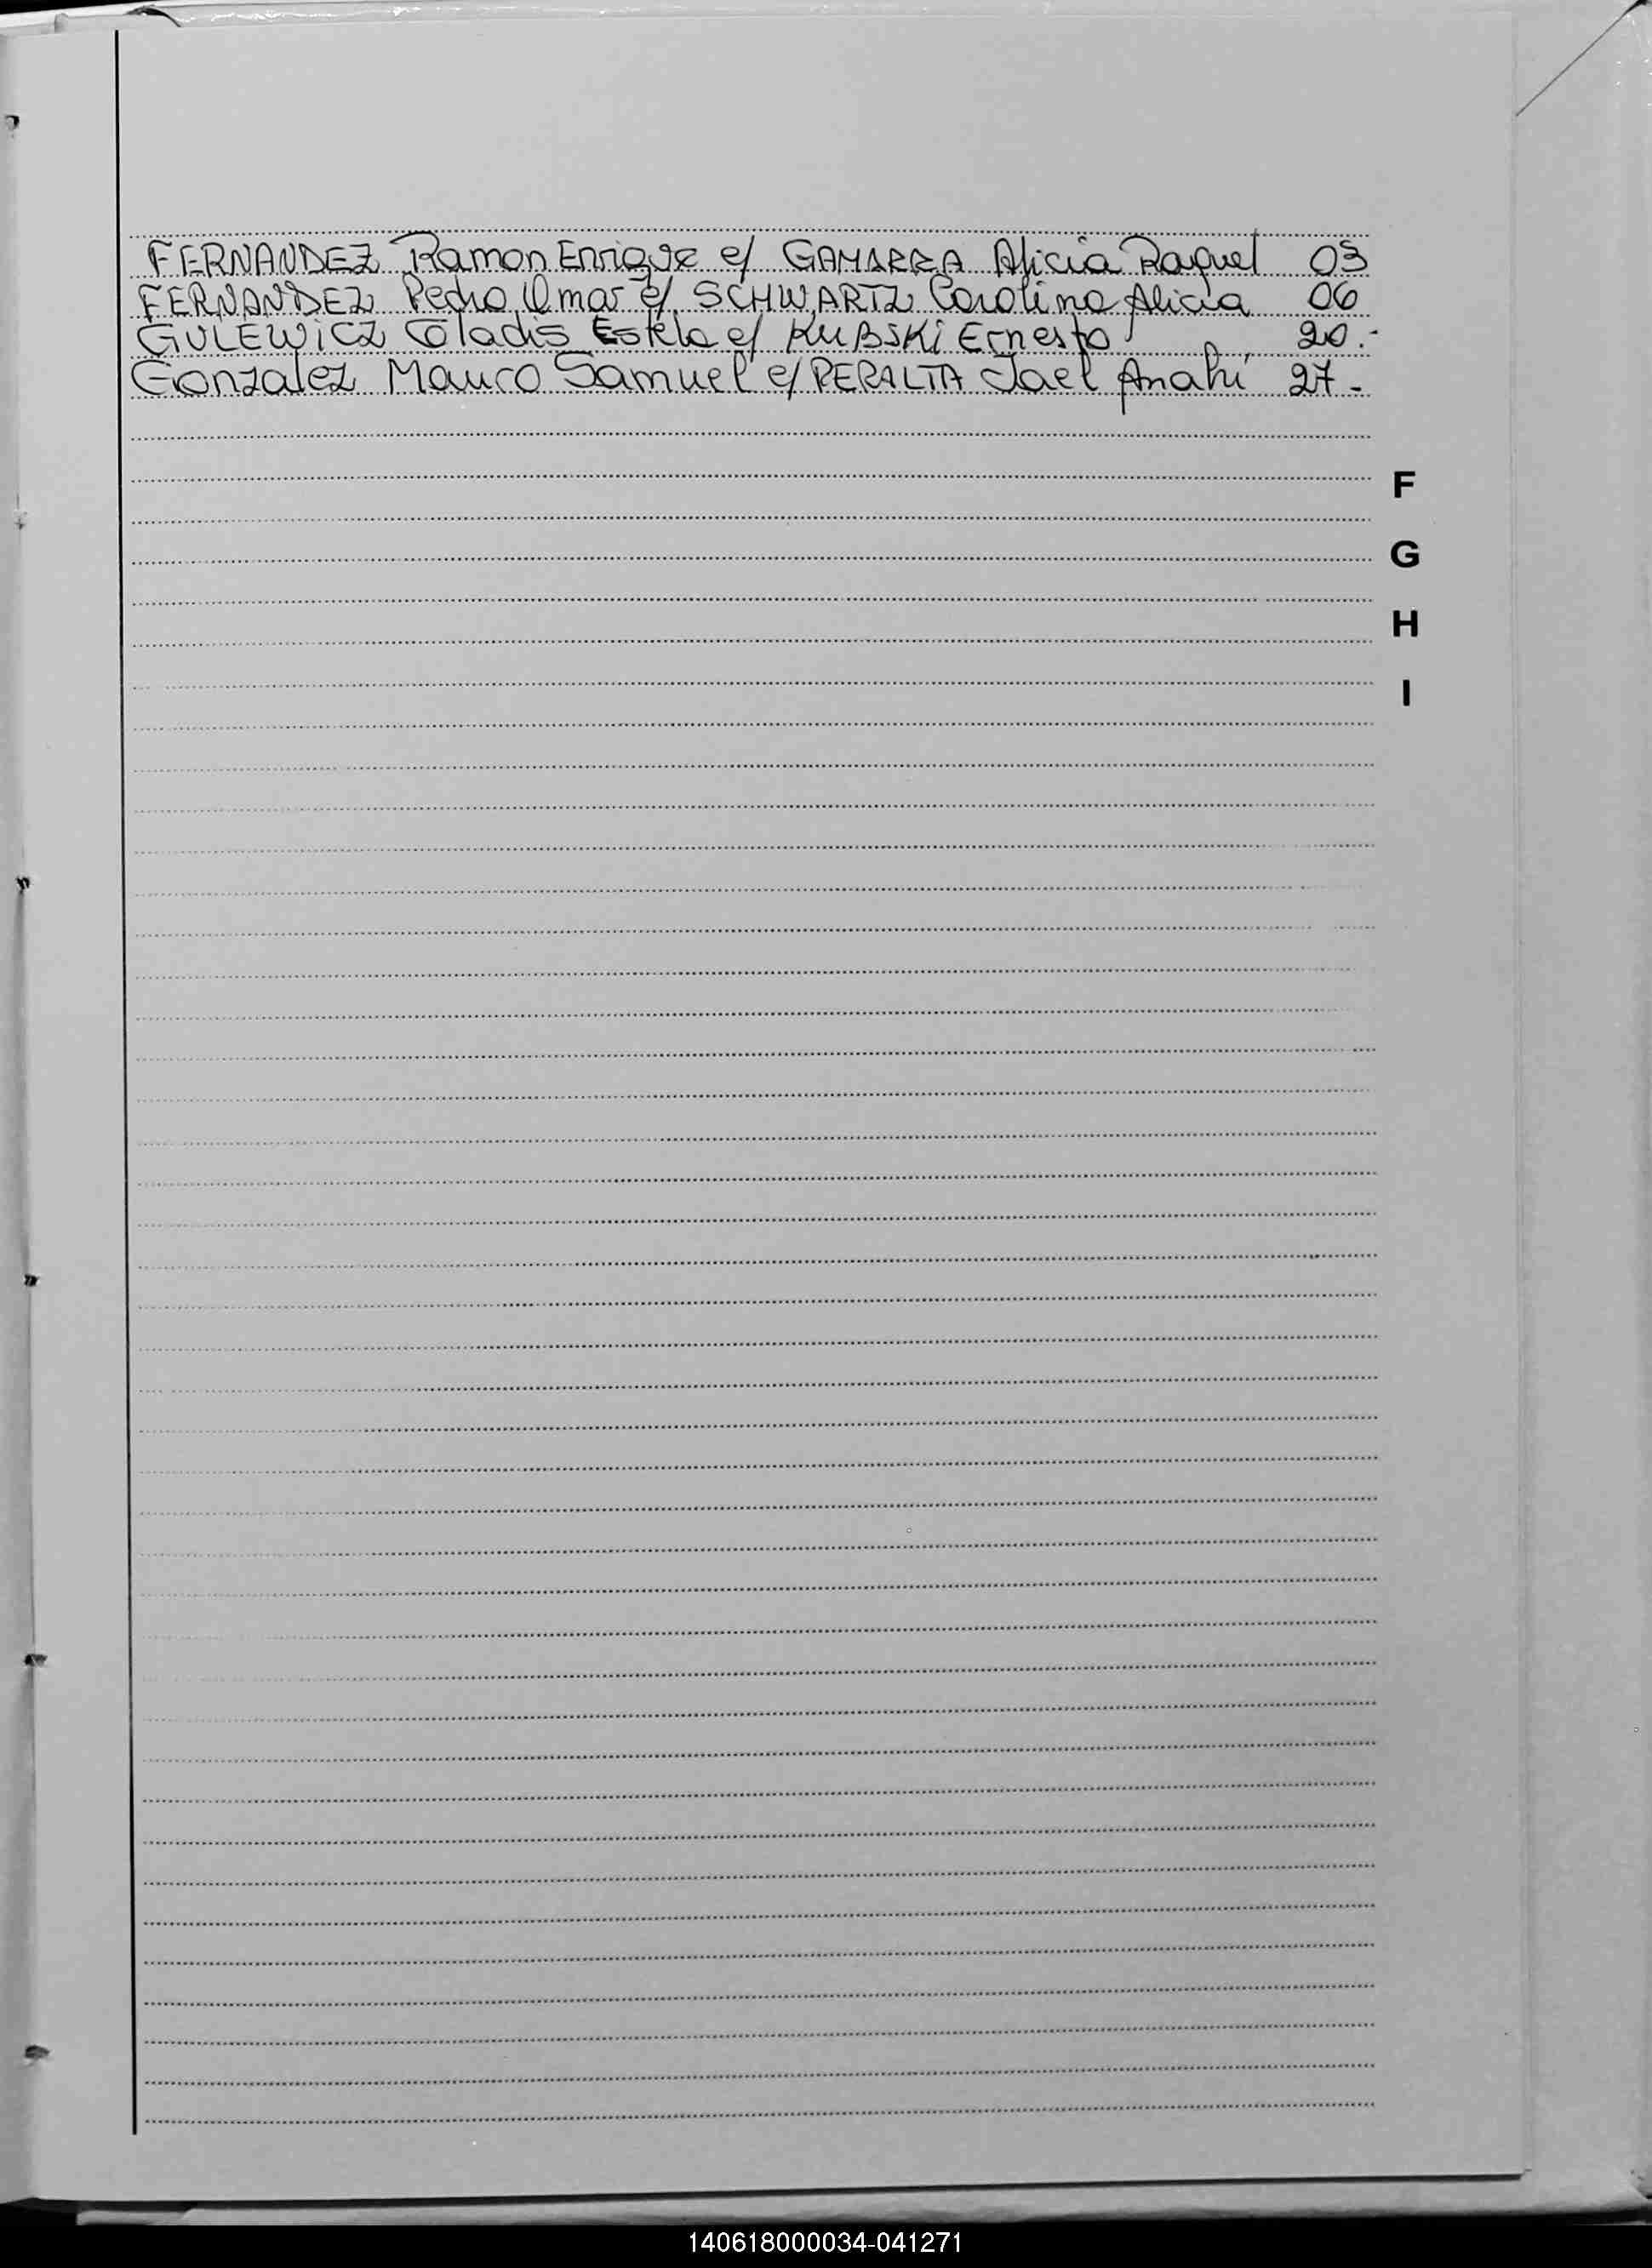 FERNANDEZ Ramon Enrique e/ GAMARRA Alicia Raquel 03
FERNANDEZ Pedro Omar e/ SCHWARTZ Carolina Alicia 06
GULEWICZ Gladis Estela e/ KUBSKI Ernesto 20.-
Gonzalez Mauro Samuel e/ PERALTA Jael Anahí 27-
F
G
H
I
140618000034-041271